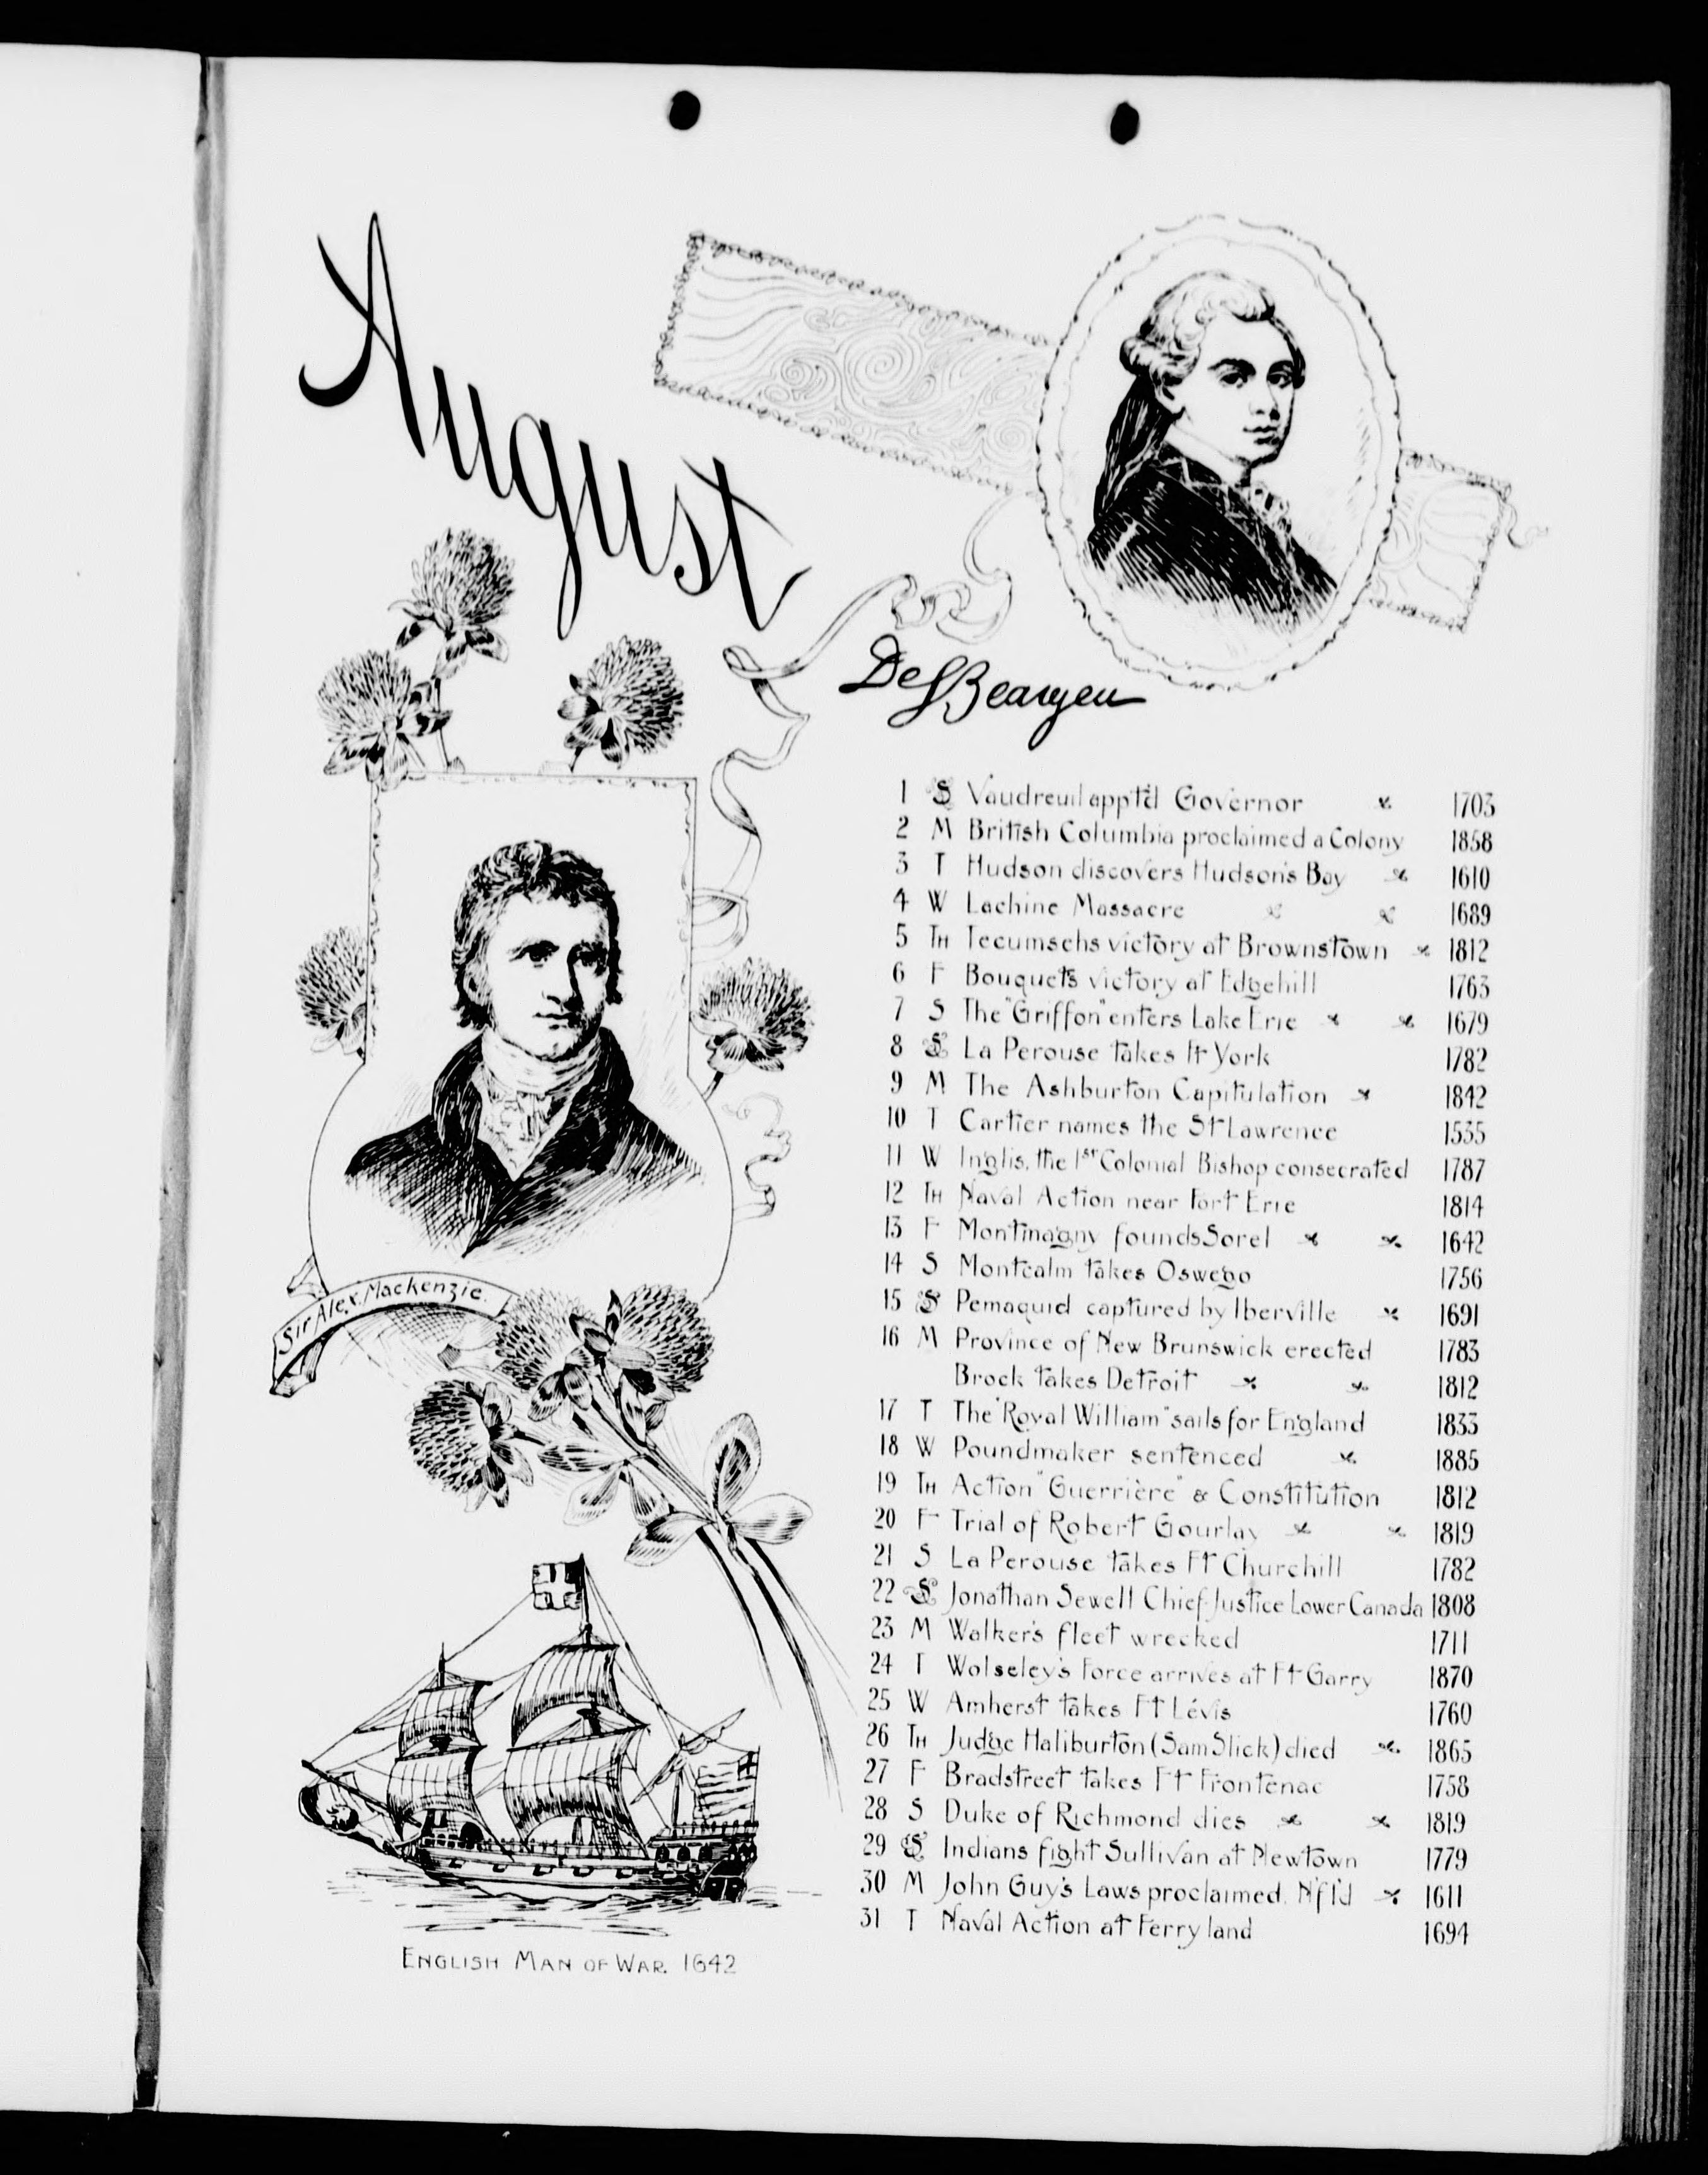 August
1 S Vaudreuil apptd Governor 1703
2 M British Columbia proclaimed a Colony 1858
3 T Hudson discovers Hudson's Bay 1610
4 W Lachine Massacre 1689
5 TH Tecumsehs victory at Brownstown 1812
6 F Bouquet's victory at Edgehill 1763
7 S The "Griffon" enters Lake Erie 1679
8 S La Perouse takes Ft York 1782
9 M The Ashburton Capitulation 1842
10 T Cartier names the St Lawrence 1535
11 W Inglis, the 1st Colonial Bishop consecrated 1787
12 TH Naval Action near Fort Erie 1814
13 F Montmagny founds Sorel 1642
14 S Montcalm takes Oswego 1756
15 S Pemaquid captured by Iberville 1691
16 M Province of New Brunswick erected 1783
Brock takes Detroit 1812
17 T The "Royal William" sails for England 1833
18 W Poundmaker sentenced 1885
19 TH Action "Guerrière" & Constitution 1812
20 F Trial of Robert Gourlay 1819
21 S La Perouse takes Ft Churchill 1782
22 S Jonathan Sewell Chief-Justice Lower Canada 1808
23 M Walker's fleet wrecked 1711
24 T Wolseley's Force arrives at Ft Garry 1870
25 W Amherst takes Ft Lévis 1760
26 TH Judge Haliburton (Sam Slick) died 1865
27 F Bradstreet takes Ft Frontenac 1758
28 S Duke of Richmond dies 1819
29 S Indians fight Sullivan at Newtown 1779
30 M John Guy's Laws proclaimed, Nf'l'd 1611
31 T Naval Action at Ferryland 1694
Sir Alex. Mackenzie.
ENGLISH MAN OF WAR. 1642